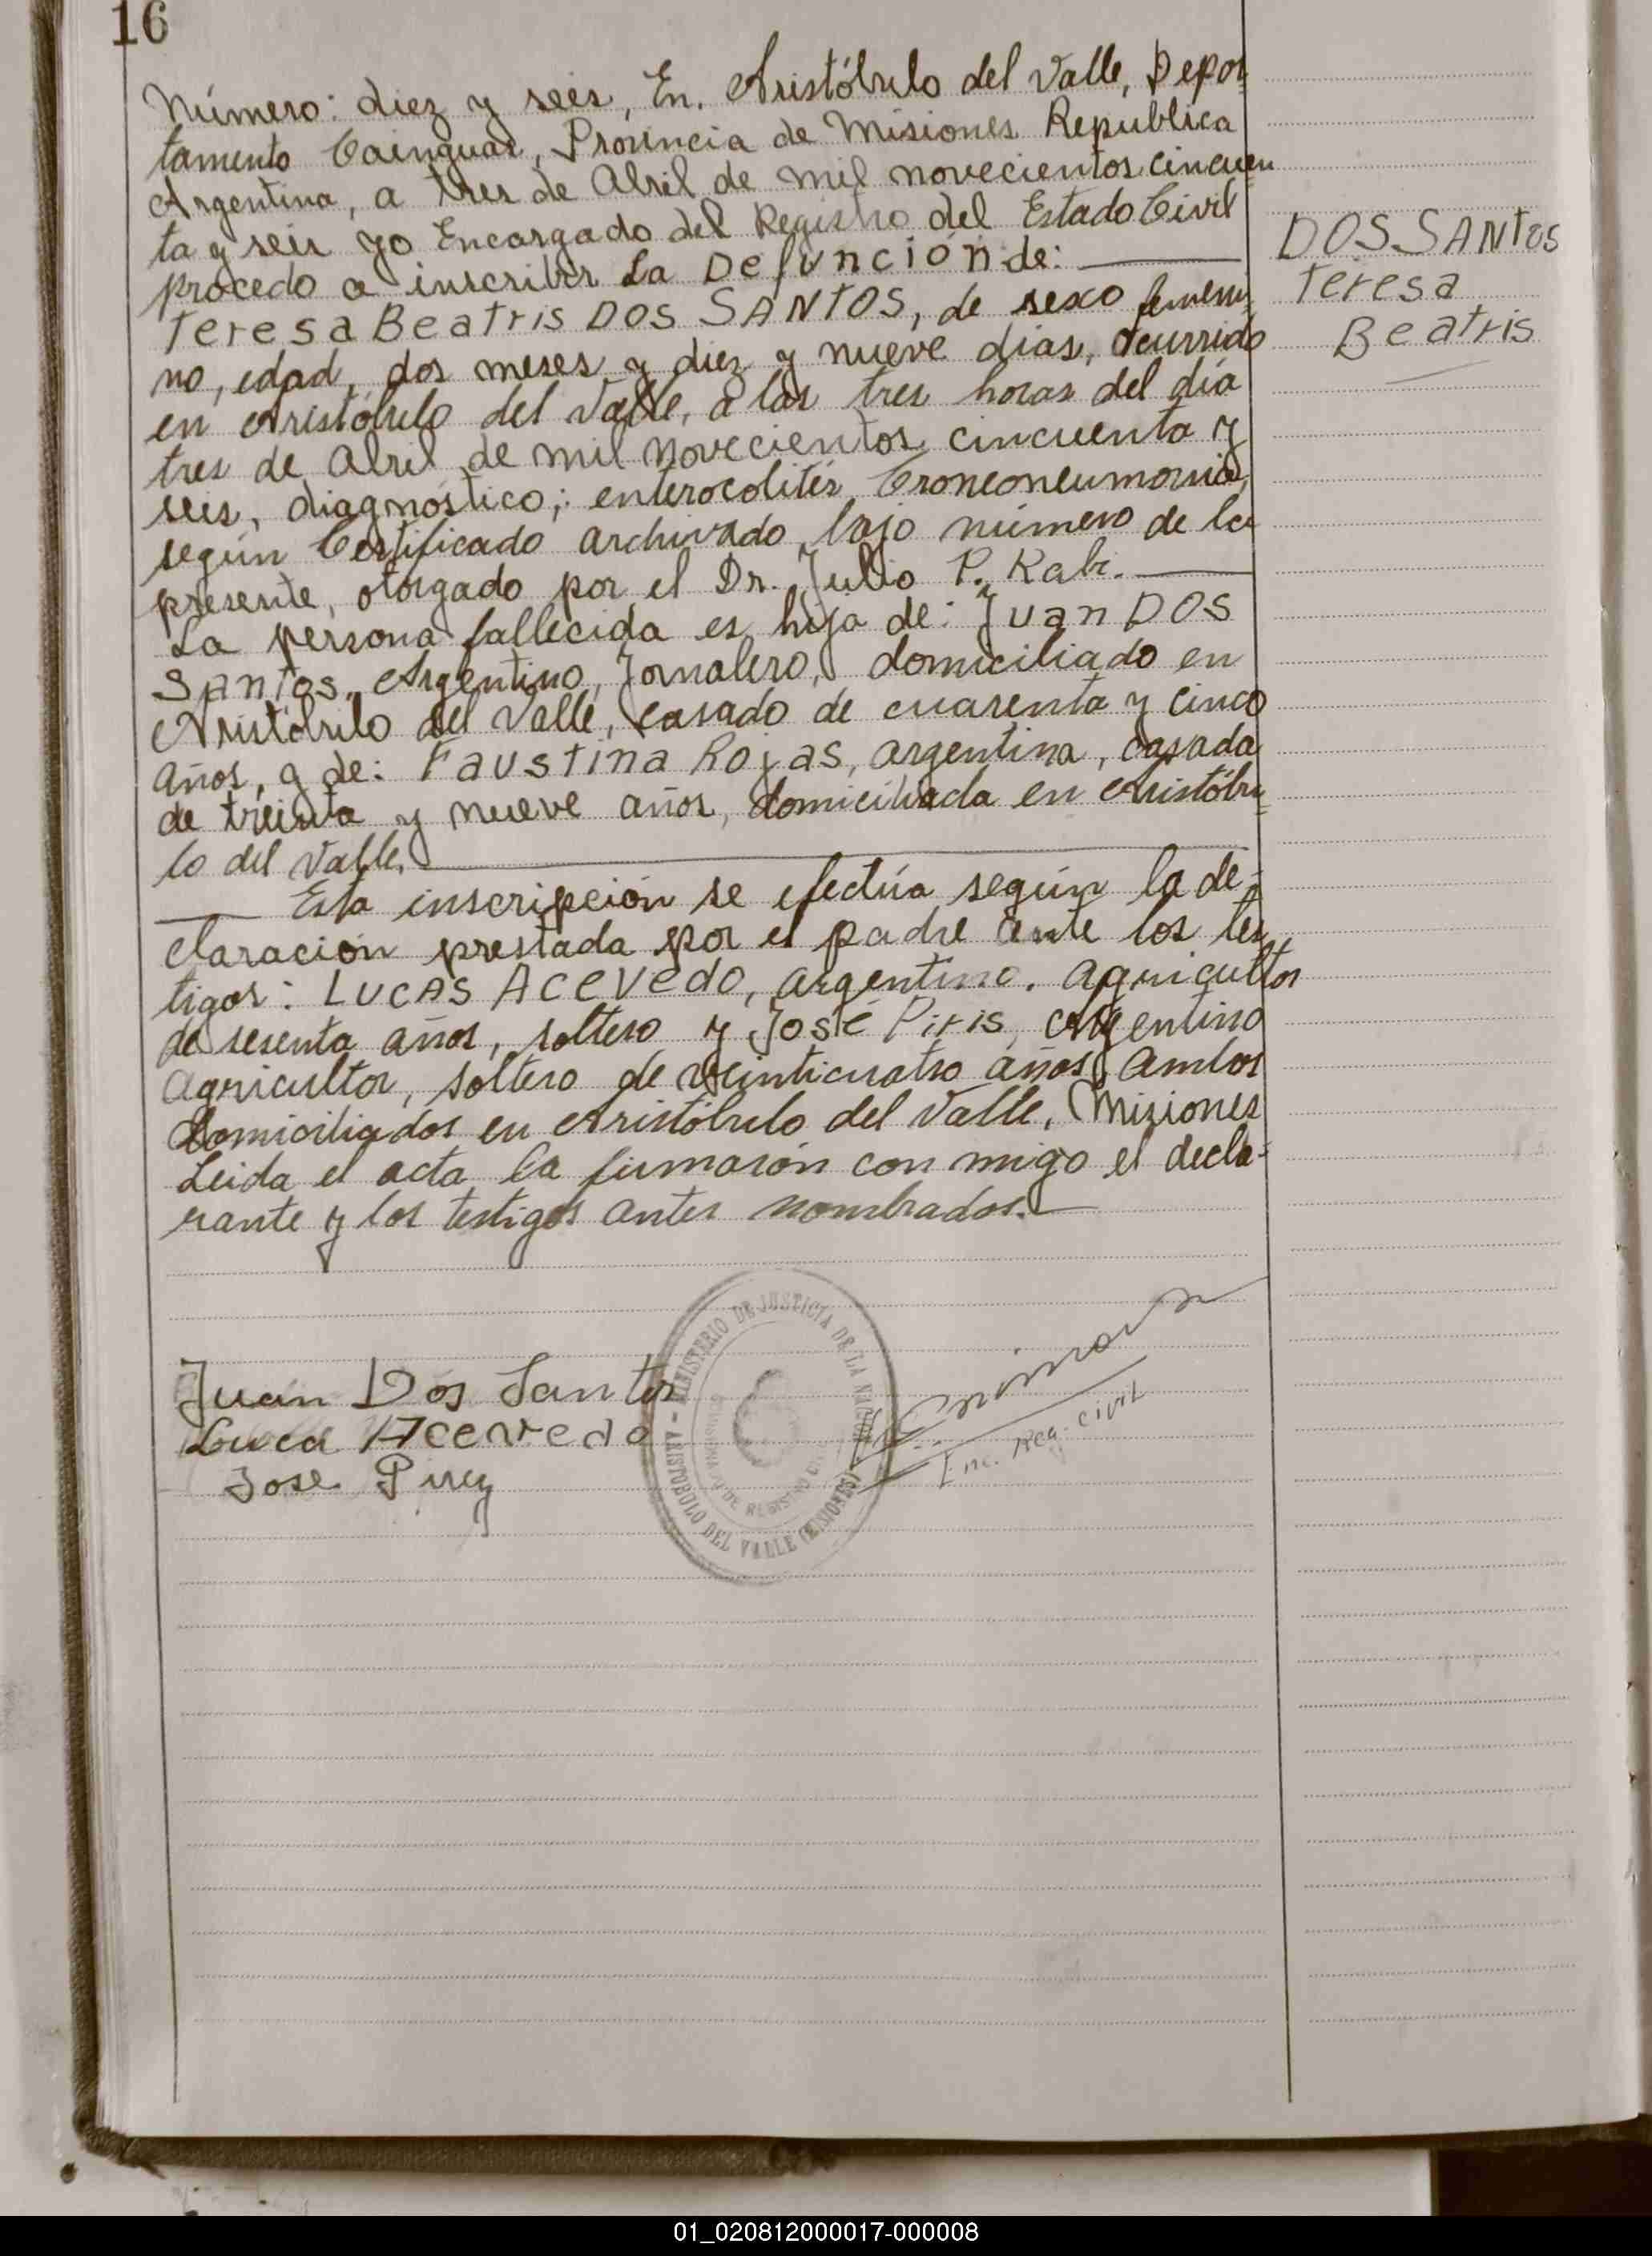 16
Número: diez y seis, En, Aristóbulo del Valle, Depar
tamento Cainguas, Provincia de Misiones Republica
Argentina, a tres de Abril de mil novecientos cincuen
ta y seis yo Encargado del Registro del Estado Civil
procedo a inscribir La Defunción de:
Teresa Beatris DOS SANTOS, de sexo femeni
no, edad, dos meses y diez y nueve días, ocurrido
en Aristóbulo del Valle, a las tres horas del día
tres de Abril de mil novecientos cincuenta y
seis, diagnóstico; enterocolitis Bronconeumonia,
según Certificado archivado bajo número de la
presente, otorgado por el Dr. Julio P. Kabi.
La persona fallecida es hija de: Juan DOS
Santos, Argentino, Jornalero, domiciliado en
Aristóbulo del Valle, casado de cuarenta y cinco
años, y de: Faustina Rojas, argentina, casada
de treinta y nueve años, domiciliada en Aristóbu
lo del Valle.
Esta inscripción se efectúa según la de-
claración prestada por el padre ante los tes
tigos: Lucas Acevedo, argentino, agricultor
de sesenta años, soltero y José Piris, Argentino
agricultor, soltero de veinticuatro años, ambos
domiciliados en Aristóbulo del Valle, Misiones
Leida el acta la firmarón con migo el decla-
rante y los testigos antes nombrados.
DOS SANTOS
Teresa
Beatris
Juan Dos Santos
Luca Acevedo
Jose Pirez
MINISTERIO DE JUSTICIA DE LA NACION
ARISTOBULO DEL VALLE (MISIONES)
Enc. Reg. Civil
01_020812000017-000008